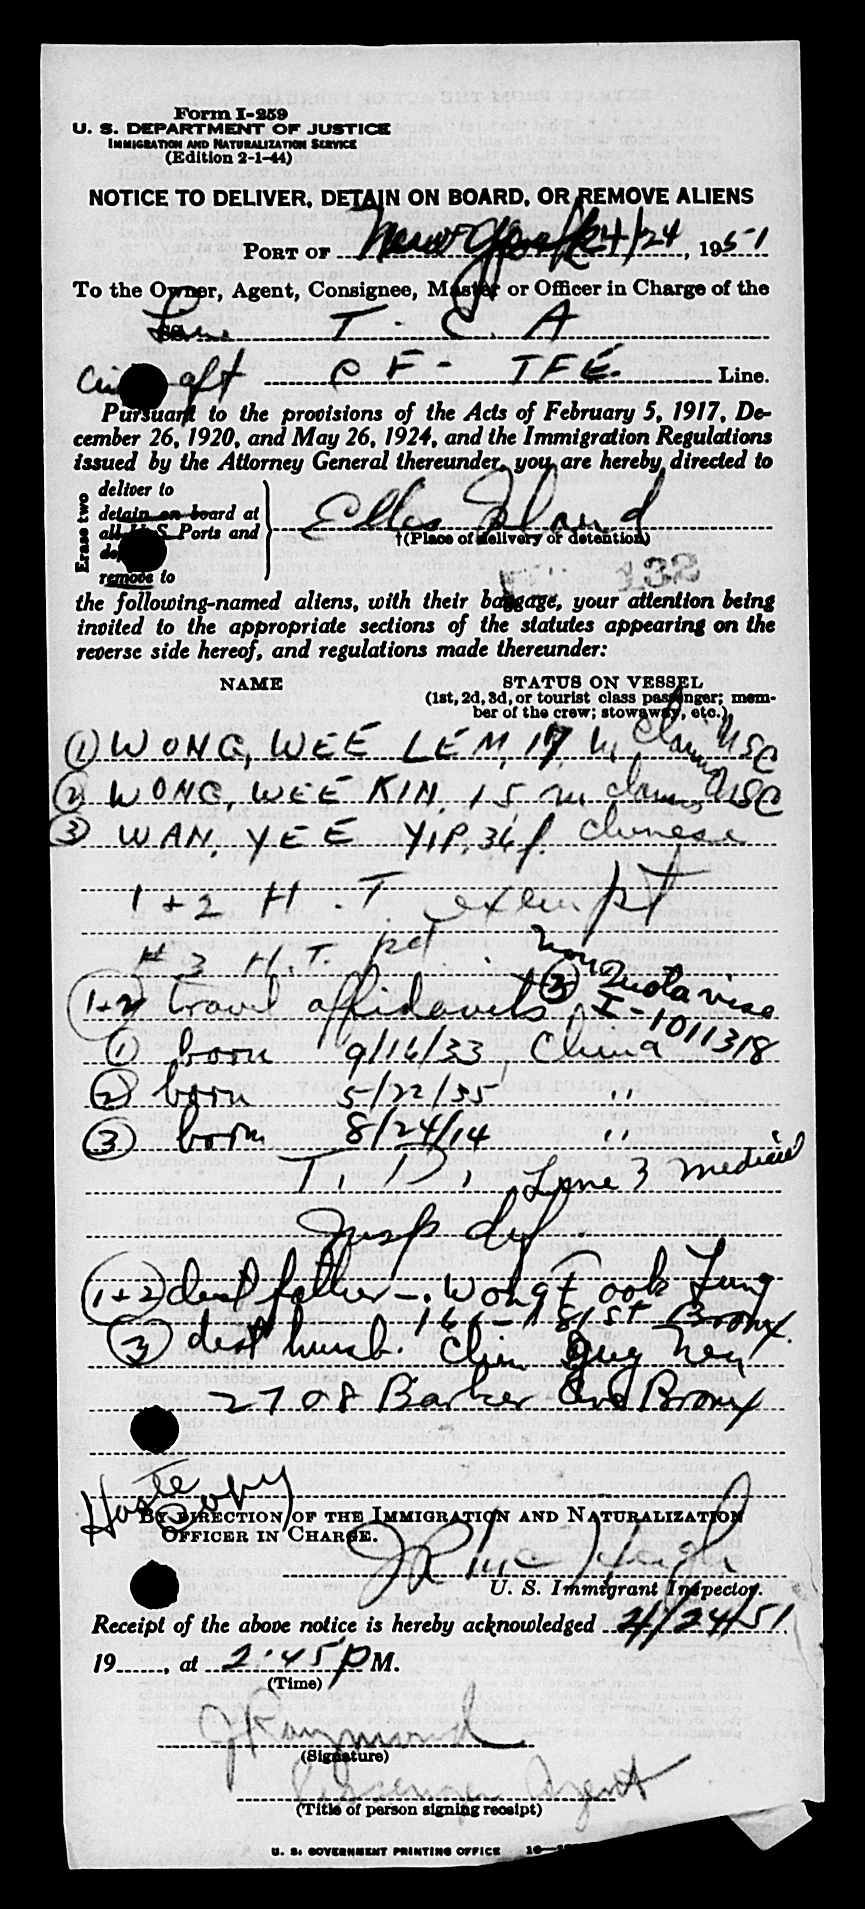 Form I-259
U. S. DEPARTMENT OF JUSTICE
IMMIGRATION AND NATURALIZATION SERVICE
(Edition 2-1-44)
NOTICE TO DELIVER, DETAIN ON BOARD, OR REMOVE ALIENS
PORT OF New York 4/24, 1951
To the Owner, Agent, Consignee, Master or Officer in Charge of the
T. C. A
CF- TFE. Line.
Pursuant to the provisions of the Acts of February 5, 1917, De-
cember 26, 1920, and May 26, 1924, and the Immigration Regulations
issued by the Attorney General thereunder, you are hereby directed to
Erase two
deliver to
detain on board at
all U S Ports and
remove to
Ellis Island
†(Place of delivery or detention)
132
the following-named aliens, with their baggage, your attention being
invited to the appropriate sections of the statutes appearing on the
reverse side hereof, and regulations made thereunder:
NAME STATUS ON VESSEL
(1st, 2d, 3d, or tourist class passenger; mem-
ber of the crew; stowaway, etc.)
(1) WONG, WEE LEM, 17, m, claims USC
(2) WONG, WEE KIN, 15, m claims USC
(3) WAN, YEE YIP, 36 f. Chinese
1 + 2 H. T. exempt
# 3 H. T. pd.
(1+2) travel affidavits (3) Non Quota visa
I-1011318
(1) born 9/16/33, China
(2) born 5/22/35 "
(3) born 8/24/14 "
T. D., Line 3 medical
Insp def.
(1+2) dest father - Wong Fook Fung
181 St Bronx.
(3) dest husb. Chin
2708 Barker Ave Bronx
Haste Copy
BY DIRECTION OF THE IMMIGRATION AND NATURALIZATION
OFFICER IN CHARGE.
U. S. Immigrant Inspector.
Receipt of the above notice is hereby acknowledged 4/24/51
19......, at 2:45 P M.
(Time)
J Raymond
(Signature)
Passenger Agent
(Title of person signing receipt)
U. S. GOVERNMENT PRINTING OFFICE